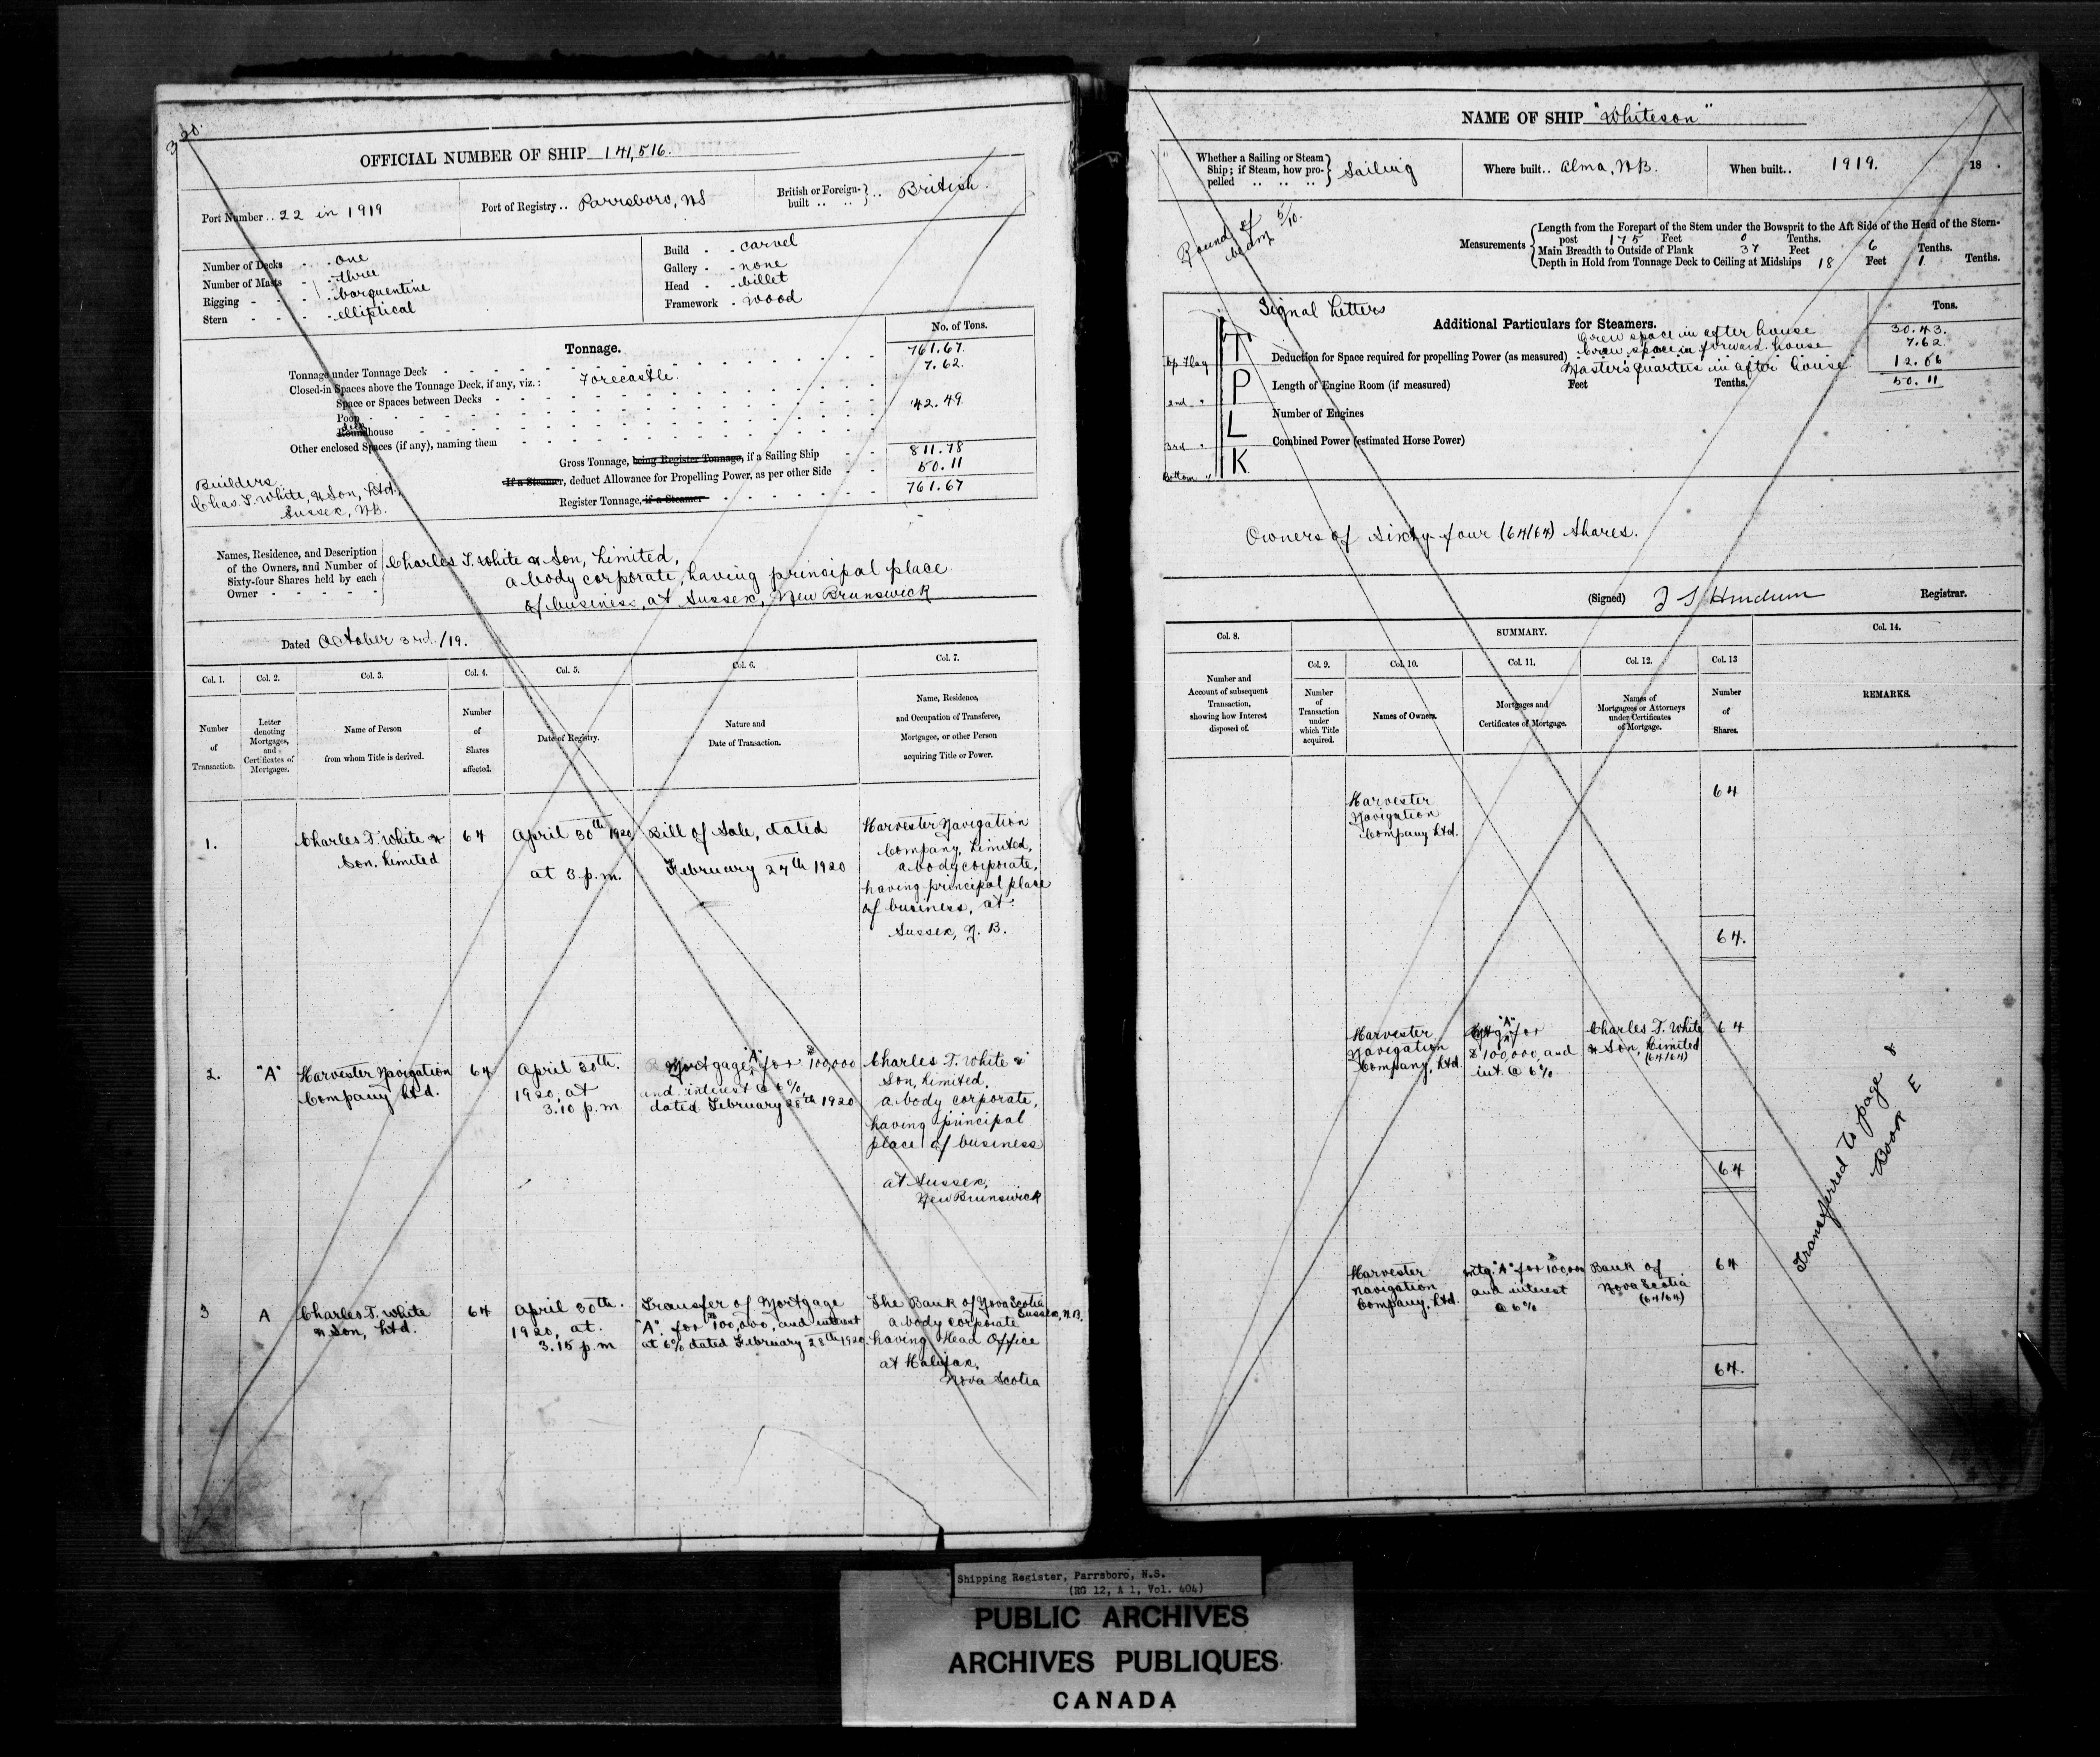 320.
OFFICIAL NUMBER OF SHIP 141,516.
Port Number .. 22 in 1919
Port of Registry .. Parrsboro, NS
British or Foreign-built .. British.
Number of Decks - - one
Number of Masts - - three
Rigging - - - barquentine
Stern - - - - elliptical
Build - - carvel
Gallery - - none
Head - - billet
Framework - wood
Tonnage.
No. of Tons.
Tonnage under Tonnage Deck 761.67.
Closed-in Spaces above the Tonnage Deck, if any, viz.: Forecastle. 7.62.
Space or Spaces between Decks
Poop
Roundhouse 42.49.
Other enclosed Spaces (if any), naming them
Gross Tonnage, being Register Tonnage, if a Sailing Ship 811.78
If a Steamer, deduct Allowance for Propelling Power, as per other Side 50.11
Register Tonnage, if a Steamer 761.67
Builders
Chas. T. White, & Son, Ltd.,
Sussex, N.B.
Names, Residence, and Description
of the Owners, and Number of
Sixty-four Shares held by each
Owner - - - - -
Charles T. White & Son, Limited,
a body corporate, having principal place
of business, at Sussex, New Brunswick
Dated October 3rd./19.
Col. 1. Col. 2. Col. 3. Col. 4. Col. 5. Col. 6. Col. 7.
Number of Transaction.
Letter denoting Mortgages, and Certificates of Mortgages.
Name of Person from whom Title is derived.
Number of Shares affected.
Date of Registry.
Nature and Date of Transaction.
Name, Residence, and Occupation of Transferee, Mortgagee, or other Person acquiring Title or Power.
1.
Charles T. White &
Son. Limited
64
April 30th 1920
at 3 p.m.
Bill of Sale, dated
February 27th 1920
Harvester Navigation
Company, Limited,
a body corporate,
having principal place
of business, at
Sussex, N. B.
2.
"A"
Harvester Navigation
Company Ltd.
64
April 30th.
1920, at
3.10 p.m
Mortgage "A" for $100,000
and interest @ 6%
dated February 28th 1920
Charles T. White &
Son, Limited,
a body corporate,
having principal
place of business
at Sussex,
New Brunswick
3
A
Charles T. White
& Son, Ltd.
64
April 30th.
1920, at.
3.15 p.m
Transfer of Mortgage
"A". for $100,000, and interest
at 6% dated February 28th 1920.
The Bank of Nova Scotia
Sussex, N.B.
a body corporate
having Head Office
at Halifax,
Nova Scotia
NAME OF SHIP "Whiteson"
Whether a Sailing or Steam Ship; if Steam, how propelled Sailing
Where built .. Alma, N.B.
When built .. 1919. 18 .
Round of beam 5/10.
Measurements
Length from the Forepart of the Stem under the Bowsprit to the Aft Side of the Head of the Stern-
post 175 Feet 0 Tenths.
Main Breadth to Outside of Plank 37 Feet 6 Tenths.
Depth in Hold from Tonnage Deck to Ceiling at Midships 18 Feet 1 Tenths.
Signal Letters
Top Flag T
2nd " P
3rd " L
Bottom " K
Additional Particulars for Steamers.
Tons.
Crew space in after house 30.43.
Deduction for Space required for propelling Power (as measured) Crew space in forward house 7.62
Masters quarters in after house 12.06
Length of Engine Room (if measured) Feet Tenths. 50.11
Number of Engines
Combined Power (estimated Horse Power)
Owners of Sixty-four (64/64) Shares.
(Signed) Registrar.
Col. 8. SUMMARY. Col. 14.
Col. 9. Col. 10. Col. 11. Col. 12. Col. 13
Number and Account of subsequent Transaction, showing how Interest disposed of.
Number of Transaction under which Title acquired.
Names of Owners.
Mortgages and Certificates of Mortgage.
Names of Mortgagees or Attorneys under Certificates of Mortgage.
Number of Shares.
REMARKS.
Harvester
Navigation
Company Ltd.
64
64.
Harvester
Navigation
Company, Ltd
Mtg. "A" for
$100,000, and
int. @ 6%
Charles T. White
& Son, Limited
(64/64)
64
64
Harvester
Navigation
Company, Ltd.
Mtg. "A" for $100,000
and interest
@ 6%
Bank of
Nova Scotia
(64/64)
64
64.
Transferred to page 8
Book E
Shipping Register, Parrsboro, N.S.
(RG 12, A 1, Vol. 404)
PUBLIC ARCHIVES
ARCHIVES PUBLIQUES
CANADA